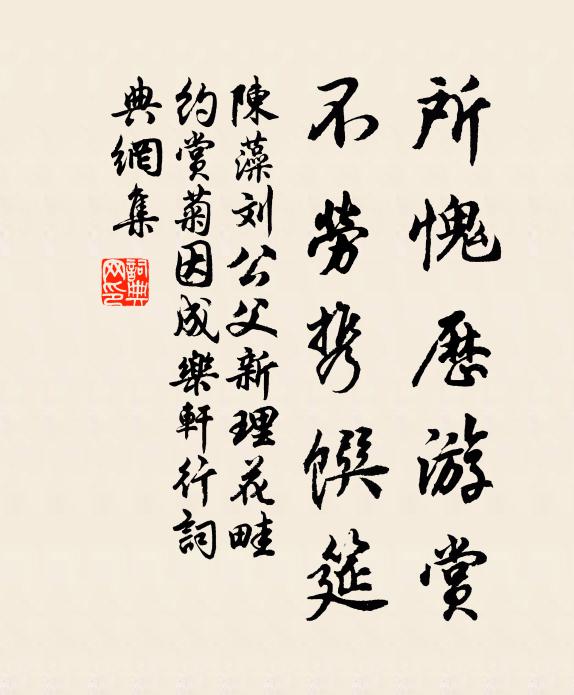 所愧歷游賞
不勞携饌筵
陳藻刘公父新理花畦
約賞菊因成樂軒行詞
典網集
詞典網印